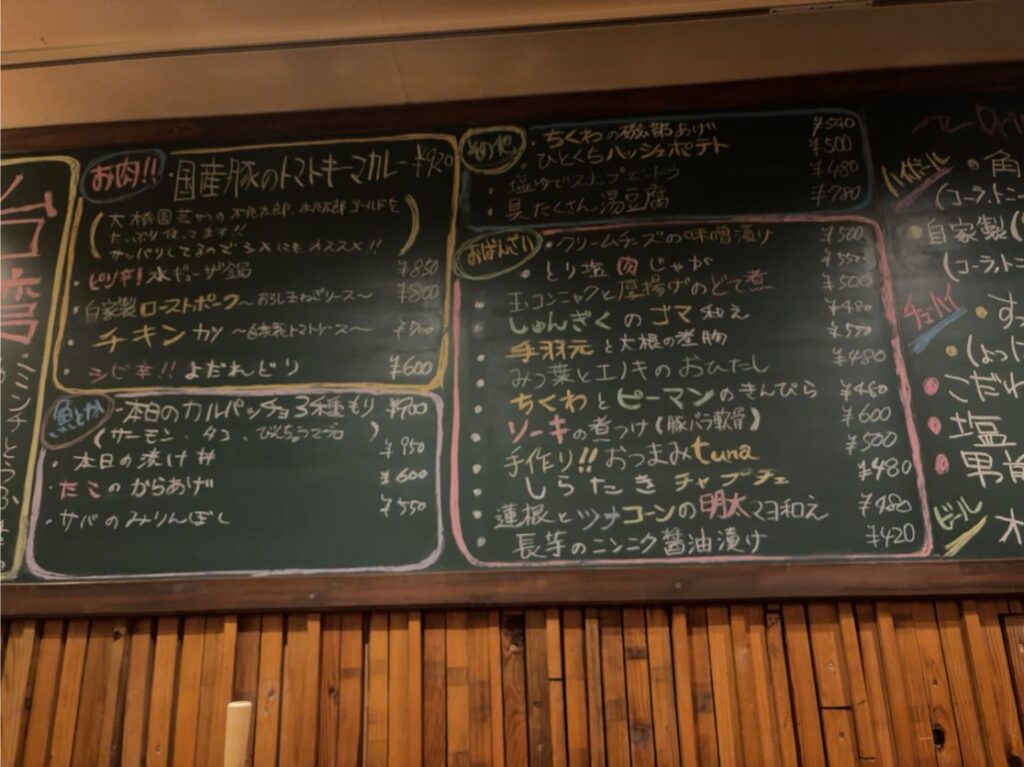 お肉!!
・国産豚のトマトキーマカレー ¥920
たっぷり使ってます!!
サッパリしてるのでシメにもオススメ!!
・ピリ辛! 水ギョーザ鍋 ¥850
・自家製ローストポーク〜おろし玉ねぎソース〜 ¥800
・チキンカツ 〜自家製トマトソース〜 ¥700
・シビ辛!! よだれどり ¥600
魚とか
・本日のカルパッチョ3種もり ¥900
(サーモン、タコ、びんちょうマグロ)
・本日の漬け丼 ¥950
・たこのからあげ ¥600
・サバのみりんぼし ¥550
その他
・ちくわの磯部あげ ¥540
・ひとくちハッシュポテト ¥500
・塩ゆでスナップエンドウ ¥480
・具だくさん湯豆腐 ¥780
おばんざい
・クリームチーズの味噌漬け ¥500
・とり塩肉じゃが ¥550
・玉コンニャクと厚揚げのどて煮 ¥500
・しゅんぎくのゴマ和え ¥480
・手羽元と大根の煮物 ¥550
・みつ葉とエノキのおひたし ¥480
・ちくわとピーマンのきんぴら ¥460
・ソーキの煮つけ(豚バラ軟骨) ¥600
・手作り!! おつまみtuna ¥500
・しらたきチャプチェ ¥480
・蓮根とツナコーンの明太マヨ和え ¥480
・長芋のニンニク醤油漬け ¥420
ハイボール
・角
(コーラ、トニ
・自家製(
(コーラ、トニ
チューハイ
・(よっ
・こだわ
・塩
・男前
ビール